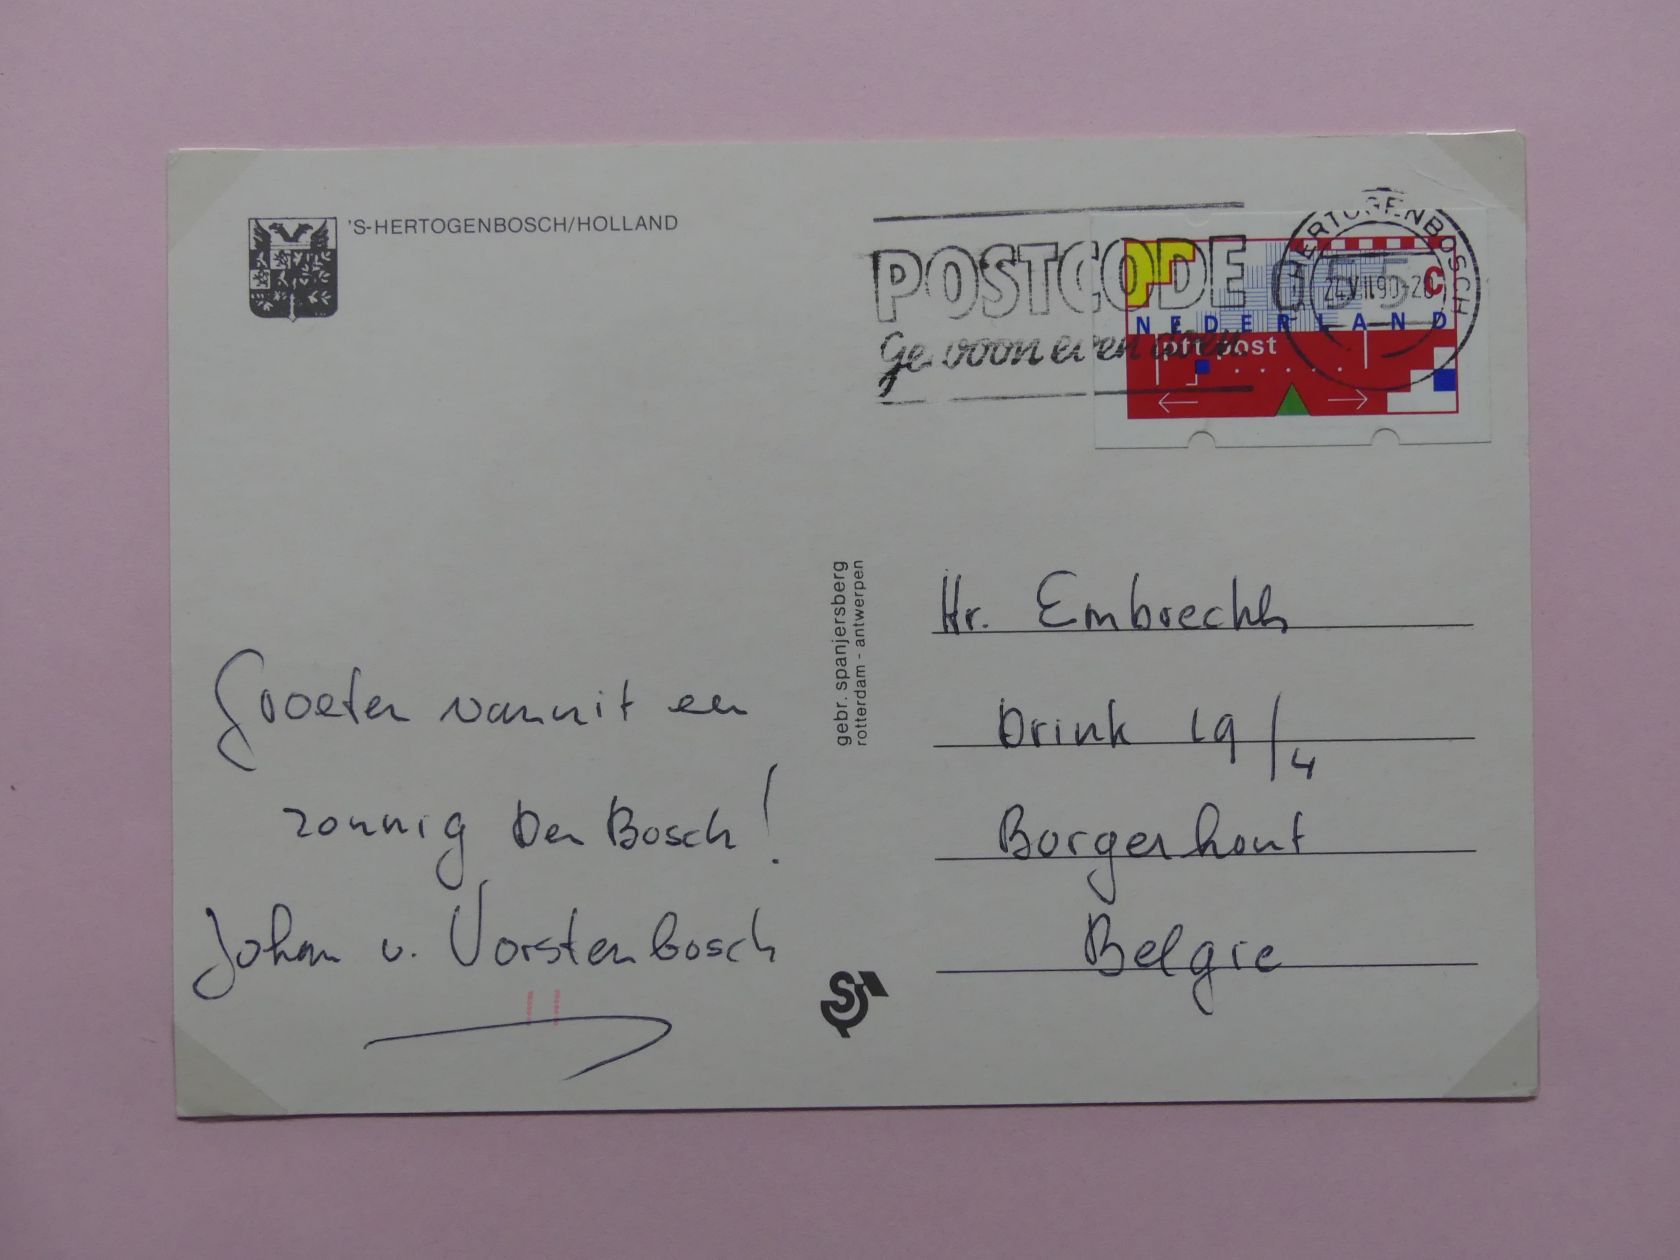 'S-HERTOGENBOSCH/HOLLAND
POSTCODE
Gewoon even doen
HERTOGENBOSCH
055 C
NEDERLAND
ptt post
gebr. spanjersberg
rotterdam - antwerpen
Groeten vanuit een
zonnig Den Bosch!
Johan v. Vorstenbosch
Hr. Embrechts
Drink 19/4
Borgerhout
Belgie